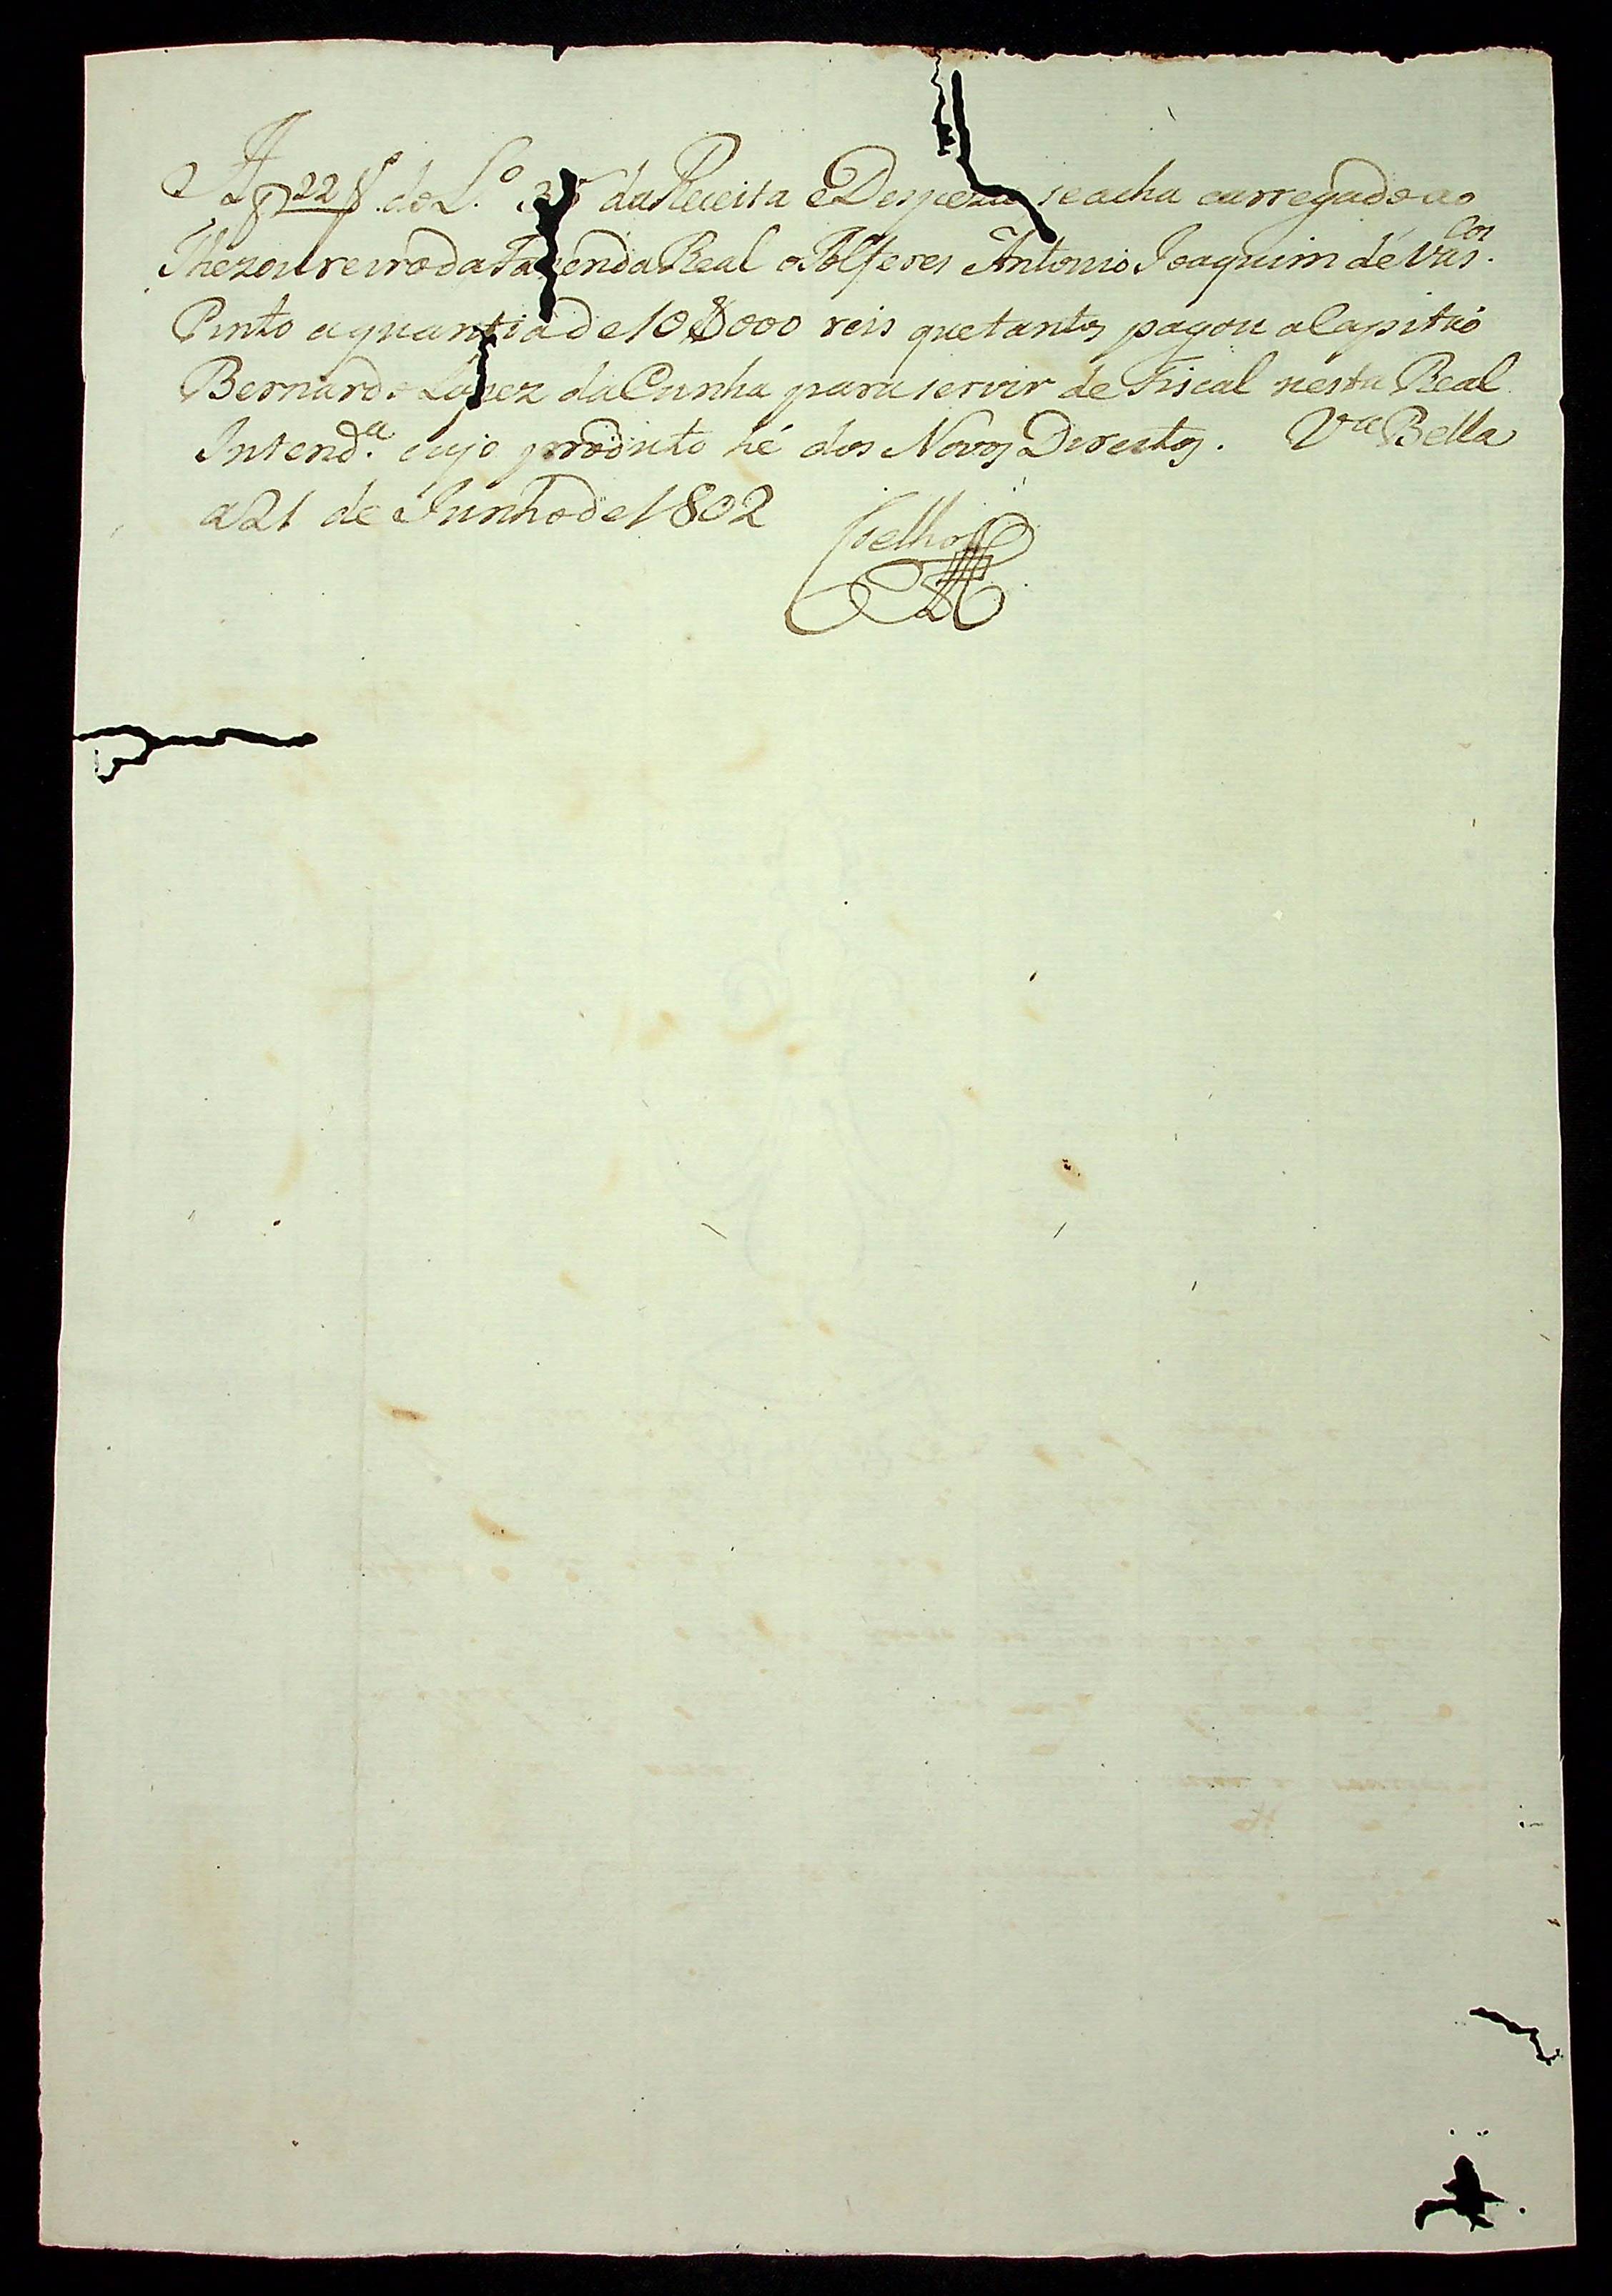 A f 22 do L.º 3 da Receita e Despeza se acha carregado ao
Thezoureiro da Fazenda Real o Alferes Antonio Joaquim de Vas.cos
Pinto a quantia de 10$000 reis que tantos pagou o Capitaó
Bernardo Lopez da Cunha para servir de Fiscal nesta Real
Intend.a cujo produto hé dos Novos Direitos. V.a Bella
a 21 de Junho de 1802
Coelho